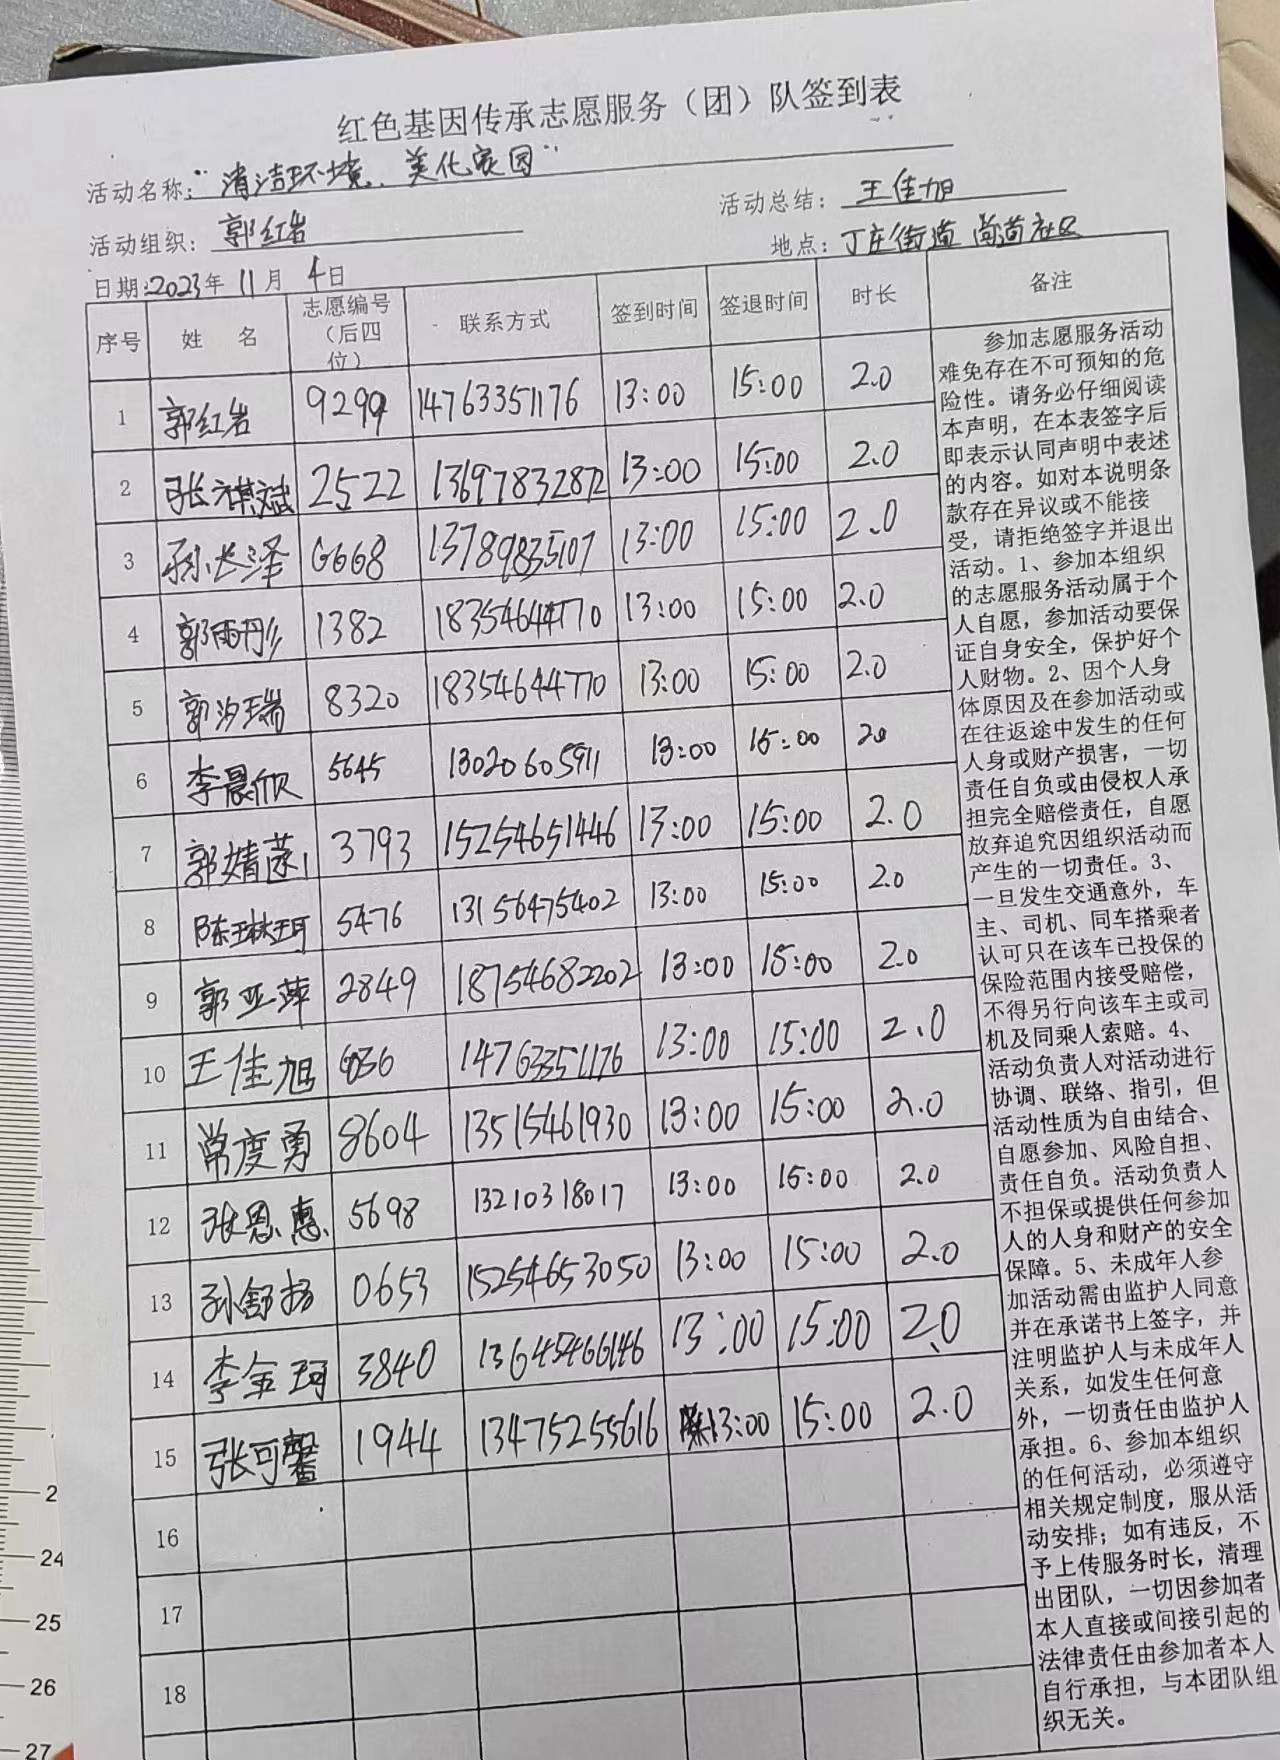 红色基因传承志愿服务（团）队签到表
活动名称：“清洁环境、美化家园”
活动组织：郭红岩 活动总结：王佳旭
日期：2023年11月4日 地点：丁庄街道 尚道社区
序号 姓 名 志愿编号（后四位） 联系方式 签到时间 签退时间 时长 备注
1 郭红岩 9299 14763351176 13:00 15:00 2.0
2 张祺斌 2522 13697832872 13:00 15:00 2.0
3 孙长泽 G668 13789835107 13:00 15:00 2.0
4 郭雨彤 1382 18354644770 13:00 15:00 2.0
5 郭汐瑞 8320 18354644770 13:00 15:00 2.0
6 李晨欣 5645 13020605911 13:00 15:00 2.0
7 郭婧 3793 15254651446 13:00 15:00 2.0
8 陈琳珂 5476 13156475402 13:00 15:00 2.0
9 郭亚萍 2849 18754682202 13:00 15:00 2.0
10 王佳旭 14763351176 13:00 15:00 2.0
11 常度勇 8604 13515461930 13:00 15:00 2.0
12 张恩惠 5698 13210318017 13:00 15:00 2.0
13 孙舒扬 0653 15254653050 13:00 15:00 2.0
14 李金珂 3840 13645466146 13:00 15:00 2.0
15 张可馨 1944 13475255616 13:00 15:00 2.0
16
17
18
参加志愿服务活动
难免存在不可预知的危
险性。请务必仔细阅读
本声明，在本表签字后
即表示认同声明中表述
的内容。如对本说明条
款存在异议或不能接
受，请拒绝签字并退出
活动。1、参加本组织
的志愿服务活动属于个
人自愿，参加活动要保
证自身安全，保护好个
人财物。2、因个人身
体原因及在参加活动或
在往返途中发生的任何
人身或财产损害，一切
责任自负或由侵权人承
担完全赔偿责任，自愿
放弃追究因组织活动而
产生的一切责任。3、
一旦发生交通意外，车
主、司机、同车搭乘者
认可只在该车已投保的
保险范围内接受赔偿，
不得另行向该车主或司
机及同乘人索赔。4、
活动负责人对活动进行
协调、联络、指引，但
活动性质为自由结合、
自愿参加、风险自担、
责任自负。活动负责人
不担保或提供任何参加
人的人身和财产的安全
保障。5、未成年人参
加活动需由监护人同意
并在承诺书上签字，并
注明监护人与未成年人
关系，如发生任何意
外，一切责任由监护人
承担。6、参加本组织
的任何活动，必须遵守
相关规定制度，服从活
动安排；如有违反，不
予上传服务时长，清理
出团队，一切因参加者
本人直接或间接引起的
法律责任由参加者本人
自行承担，与本团队组
织无关。
2
24
25
26
27